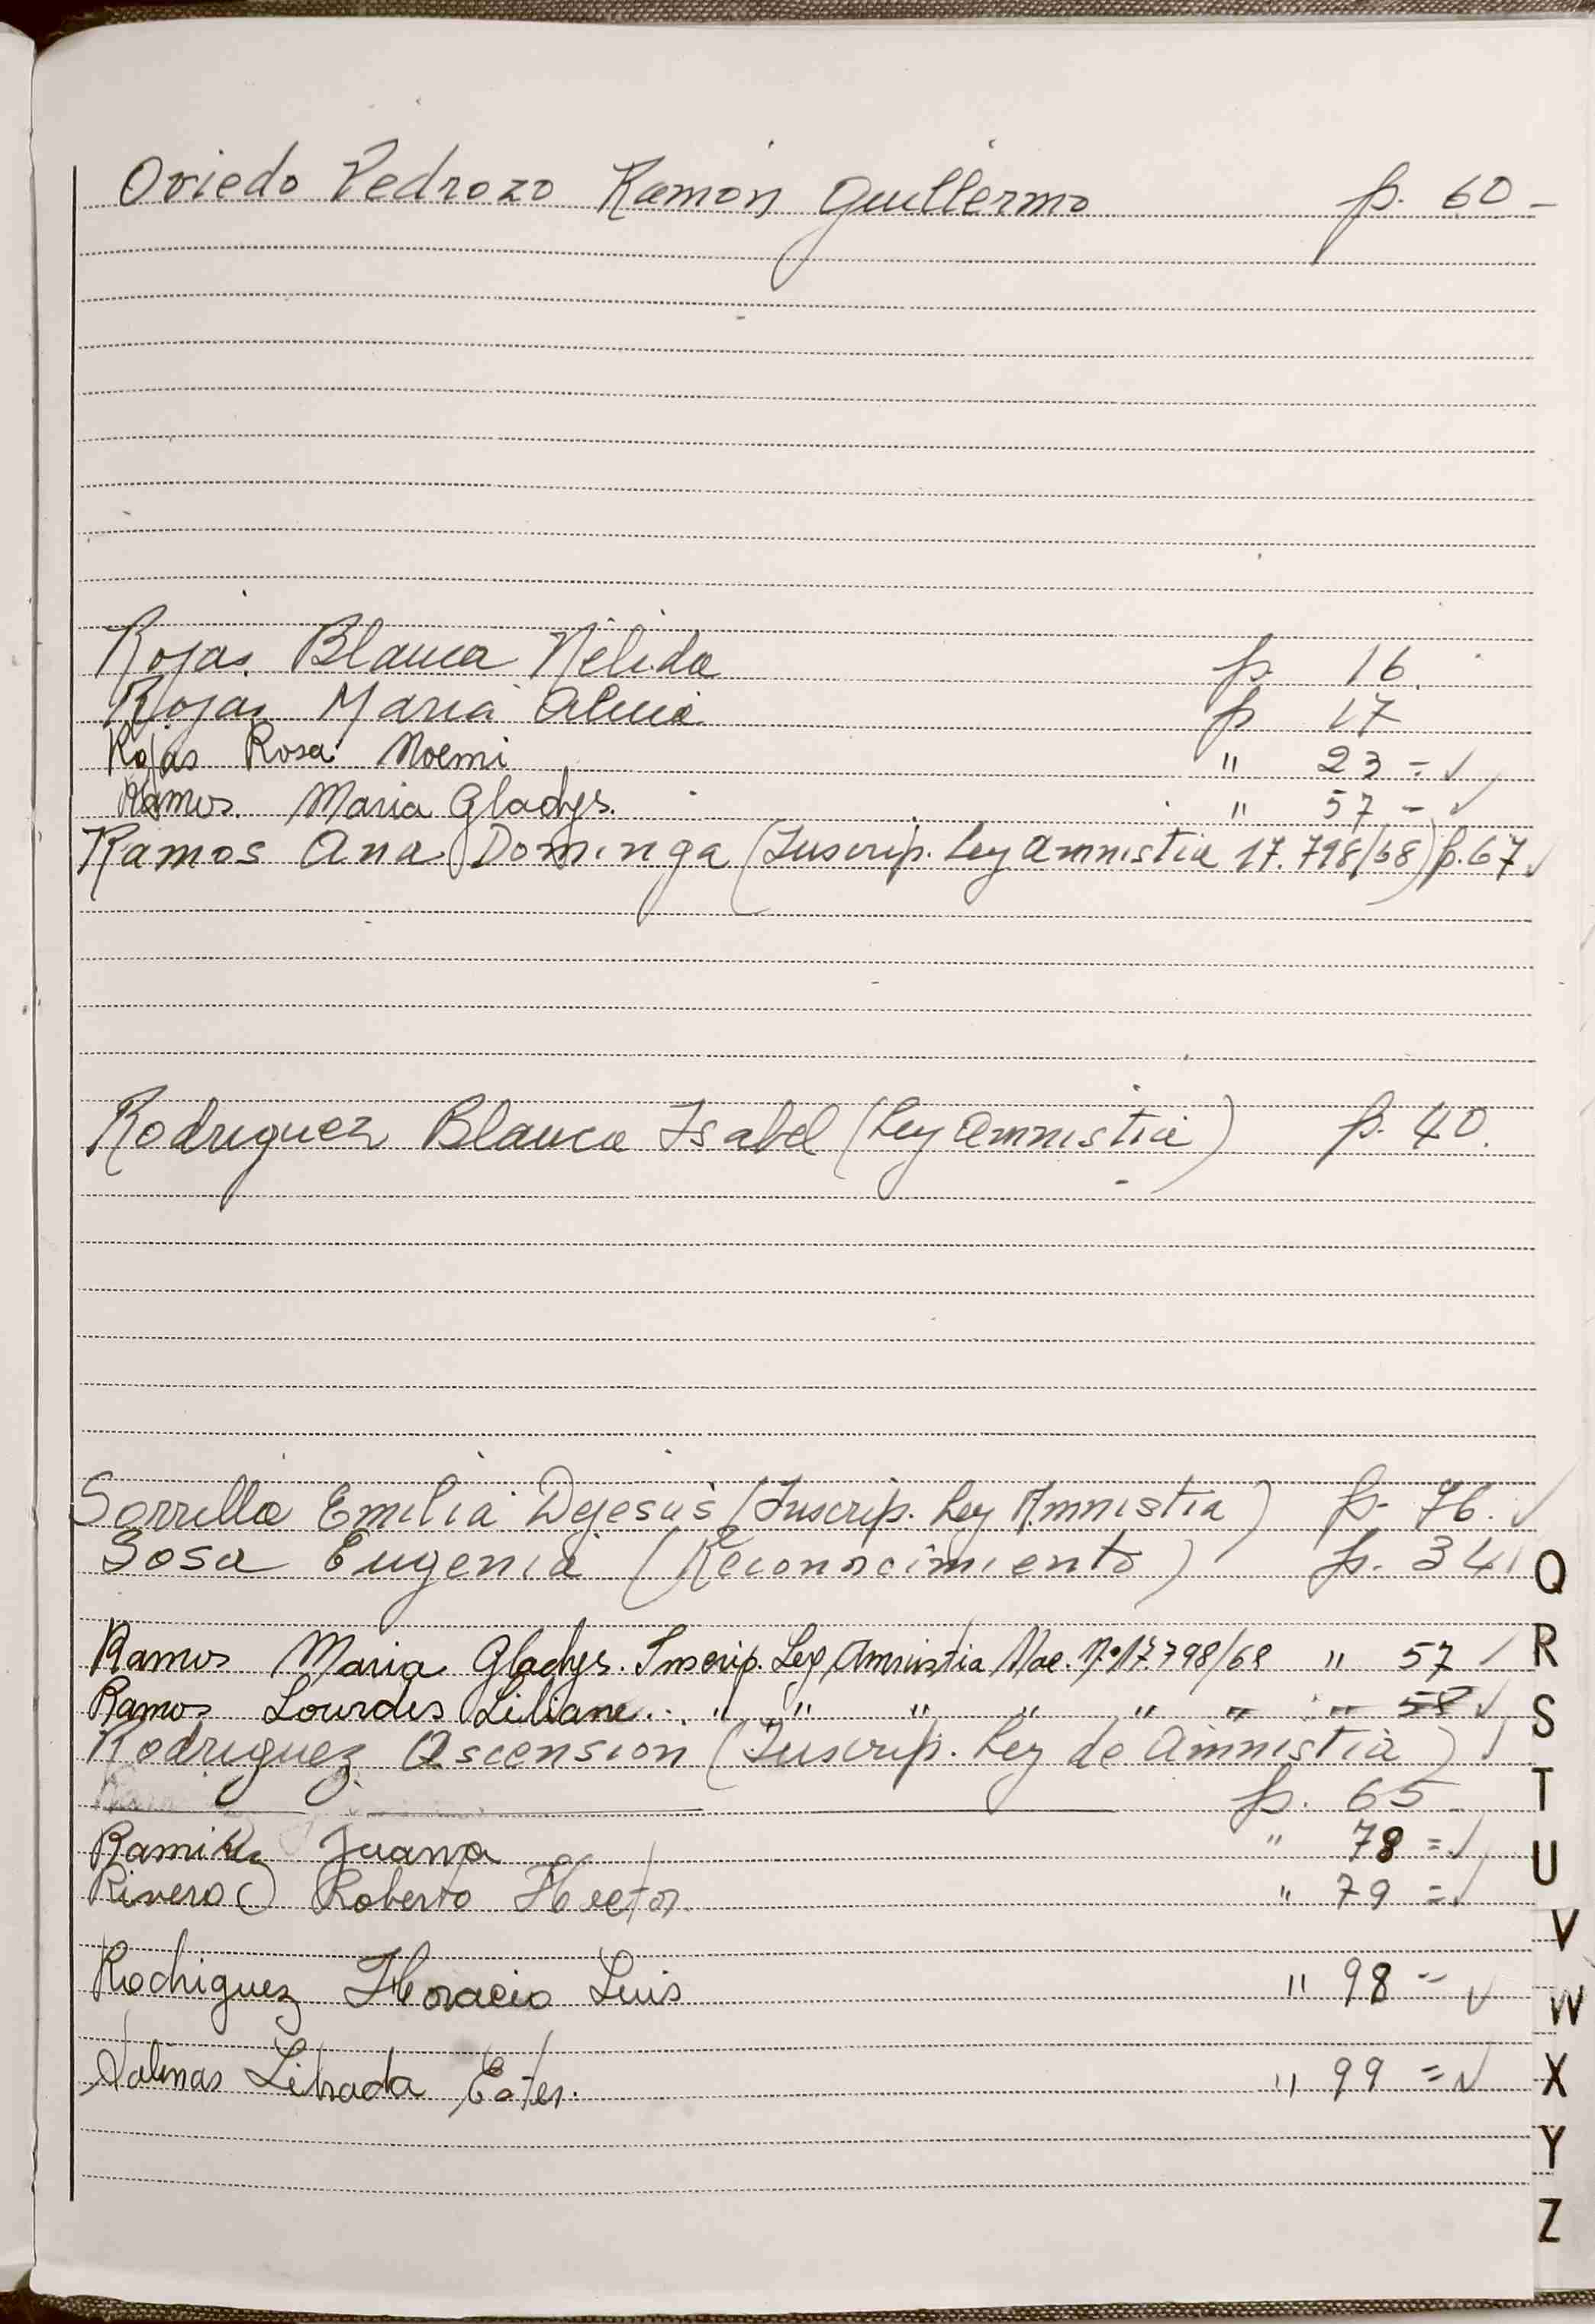 Oviedo Pedrozo Ramón Guillermo p. 60 -
Rojas Blanca Nélida p. 16.
Rojas María Alicia p 17
Rojas Rosa Noemi " 23 = ✓
Ramos. Maria Gladys. " 57 - ✓
Ramos Ana Dominga (Inscrip. Ley Amnistia 17.798/68) p. 67 ✓
Rodriguez Blanca Isabel (Ley Amnistia) p. 40.
Sorrilla Emilia Dejesús (Inscrip. Ley Amnistia) p. 76. ✓
Sosa Eugenia (Reconocimiento) p. 34
Q
Ramos Maria Gladys. Inscrip. Ley Amnistia Nac. Nº 17.798/68 " 57 ✓
R
Ramos Lourdes Liliana... " " " " " " " 58 ✓
S
Rodriguez Ascension (Inscrip. Ley de Amnistia) ✓
p. 65
T
Ramirez Juana " 78 = ✓
U
Rivero Roberto Hector. " 79 = ✓
V
Rodriguez Horacio Luis " 98 = ✓
W
Salinas Librada Ester. " 99 = ✓
X
Y
Z